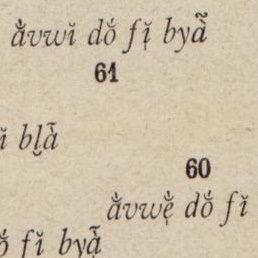 ǎ̀vwĭ dǒ́ fĭ̩ byà̰̃
61
ĭ bl̮ä̀
60
ǎ̀vwẹ̆̀ dǒ́ fĭ
ǒ́ fĭ byạ̈̀